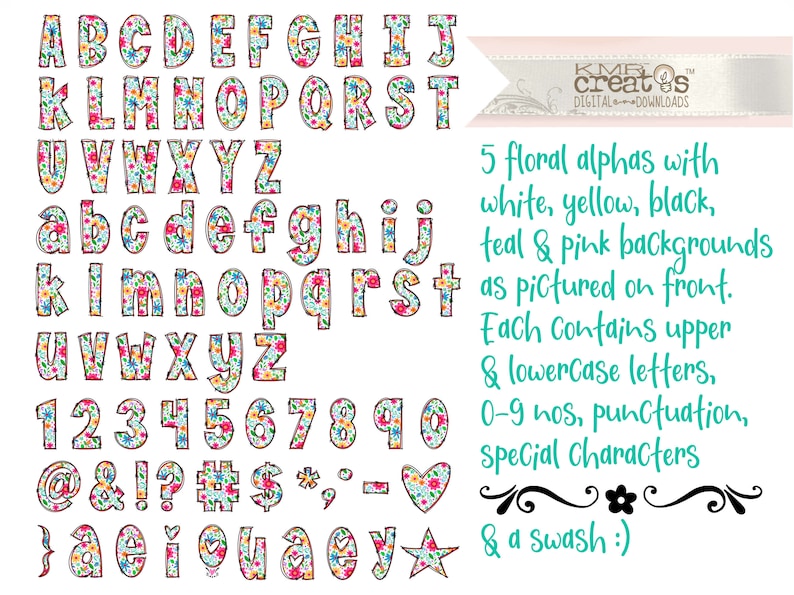 A B C D E F G H I J
K L M N O P Q R S T
U V W X Y Z
a b c d e f g h i j
k l m n o p q r s t
u v w x y z
1 2 3 4 5 6 7 8 9 0
@ & ! ? # $ * ; -
} a e i o u a e y
TM
DIGITAL DOWNLOADS
5 floral alphas with
white, yellow, black,
teal & pink backgrounds
as pictured on front.
Each contains upper
& lowercase letters,
0-9 nos, punctuation,
special characters
& a swash :)